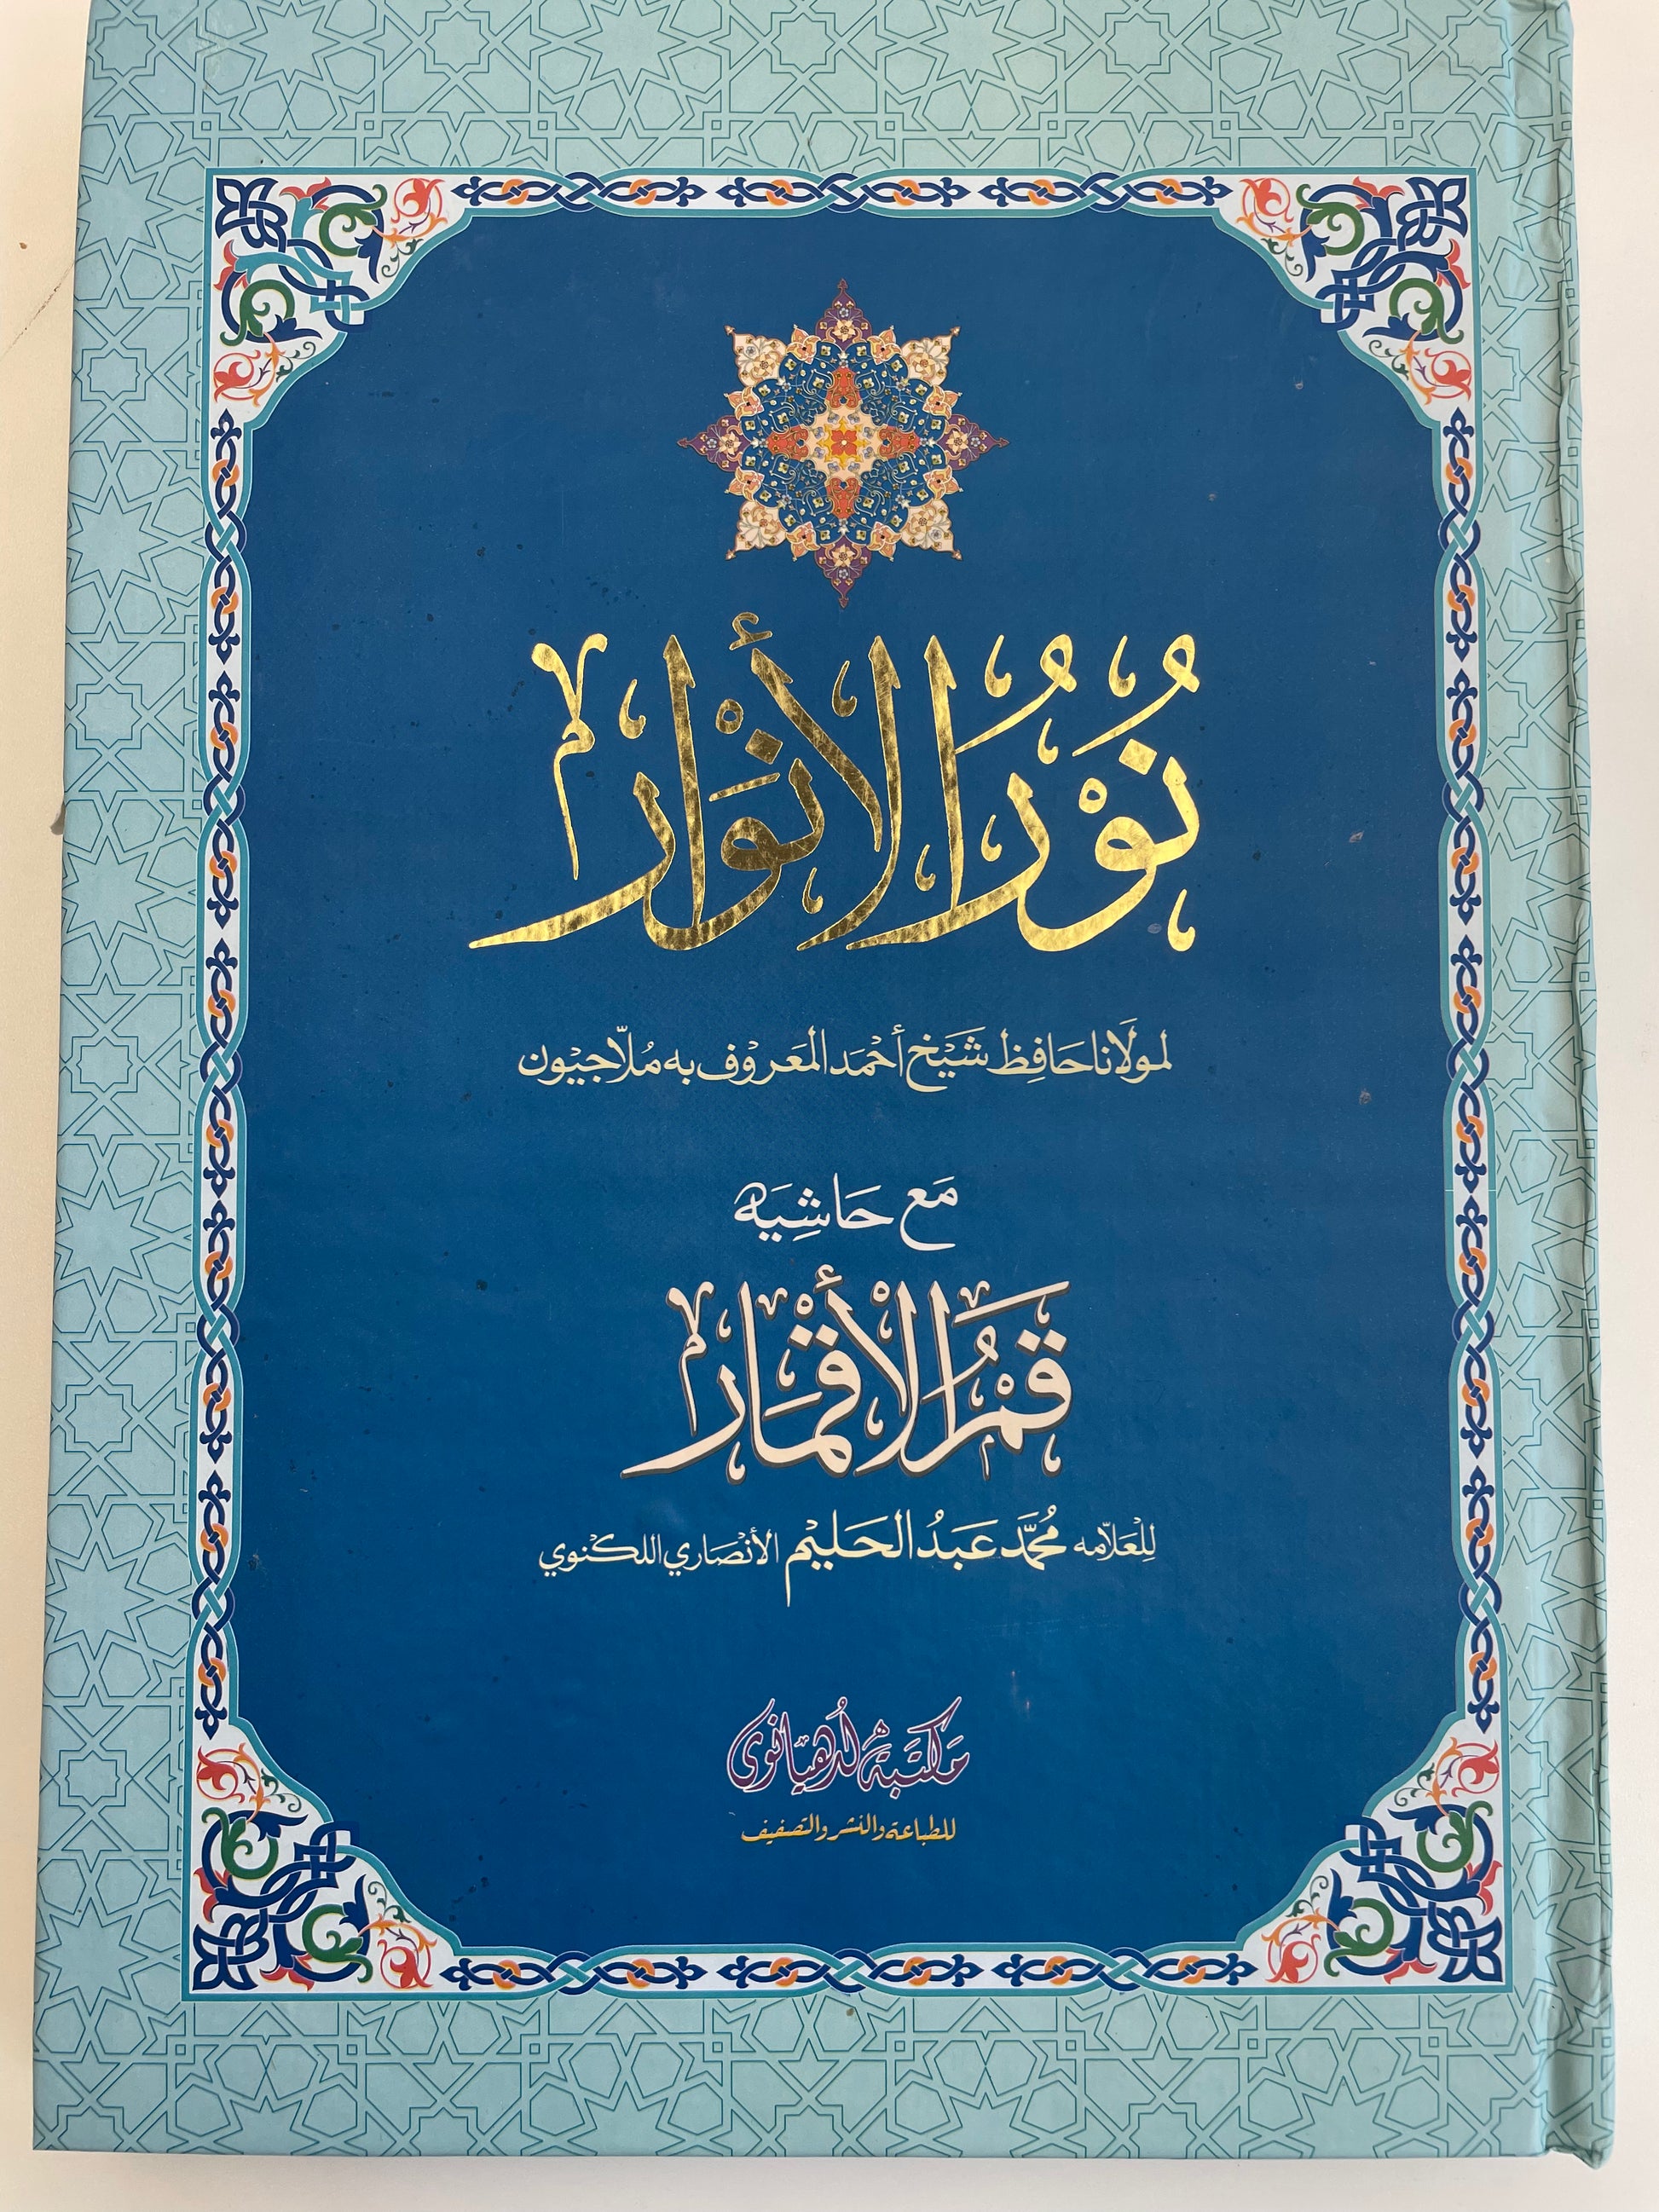 نُوْرُ الأَنْوَار
لمولَانا حَافِظ شَيْخ أحْمَد المَعروْف به مُلّاجيْون
مَع حَاشِيَه
قَمَرُ الْأَقْمَار
لِلْعَلاّمه مُحمَّد عَبدُ الحَليْم الأنْصَاري اللكنوي
مَكتَبَة لُدهيانوى
للطباعة والنشر والتصفيف